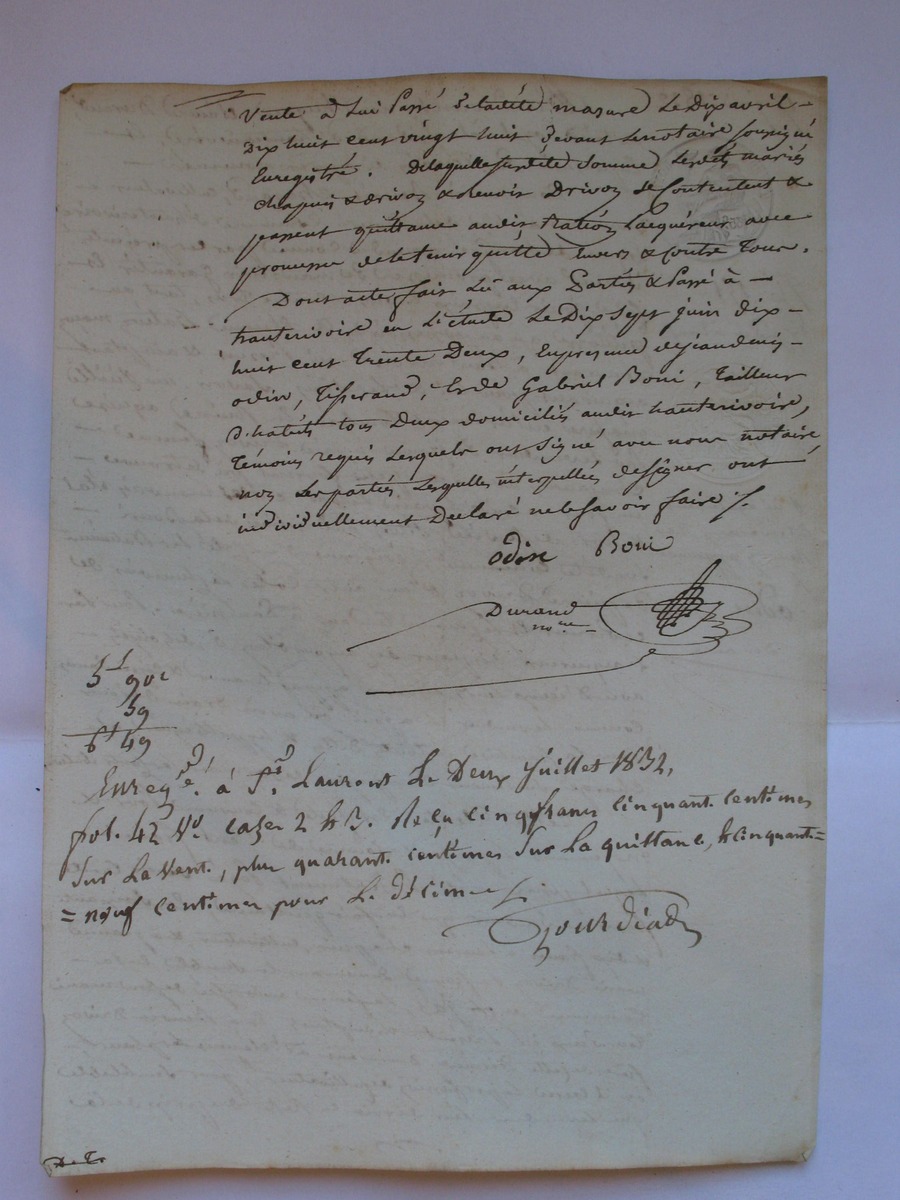 Vente à lui Passé de ladite masure Le Dix avril
Dix huit cent vingt huit devant Lenotaire soussigné
Enregistré. Delaquelle susdite somme Lesdits mariés
chapuis & drivon & Benoit Drivon se Contentent &
passent quittance audit Ration Lacquéreur avec
promesse de le tenir quitte Envers & contre Tous.
Dont acte, fait Lû aux Parties & Passé à
hauterivoire en L'étude Le Dix sept juin dix-
huit cent Trente Deux, En présence dejeandenis
odin, Tisserand, Et de Gabriel Boni, Tailleur
d'habits tous Deux domiciliés audit hauterivoire,
Témoins requis Lesquels ont signé avec nous notaire
non Les parties Lesquelles interpellées designer ont
individuellement Déclaré nele savoir faire ./.
odin Boni
Durand
nore
5f 90c
59
6f 49
Enregé. à St. Laurent Le Deux Juillet 1832,
fol. 42 Vo. cases 2 & 3. Reçu cinq francs cinquant. centimes
sur La Vent., plus quarant. centimes sur La quittance, & cinquant=
= neuf centimes pour Le décime ./.